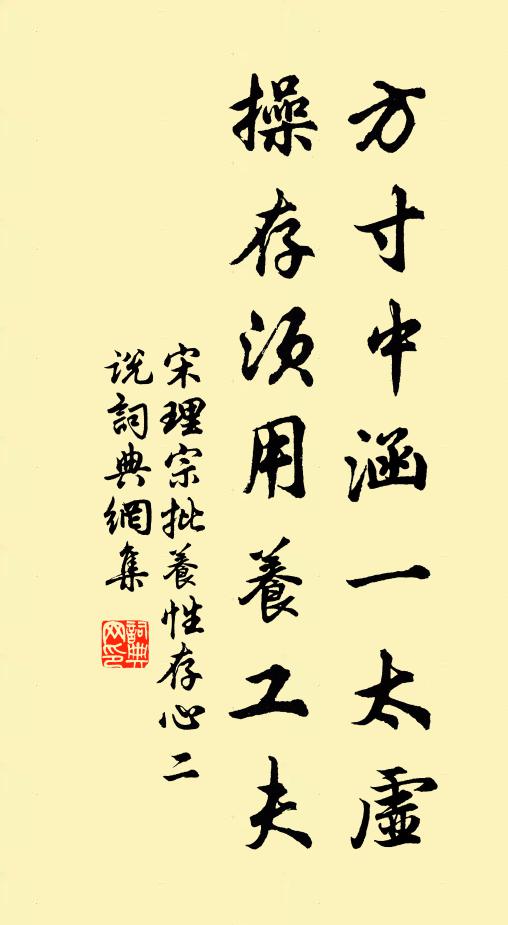 方寸中涵一太虛
操存須用養工夫
宋理宗批養性存心二
說詞典網集
詞典
网印